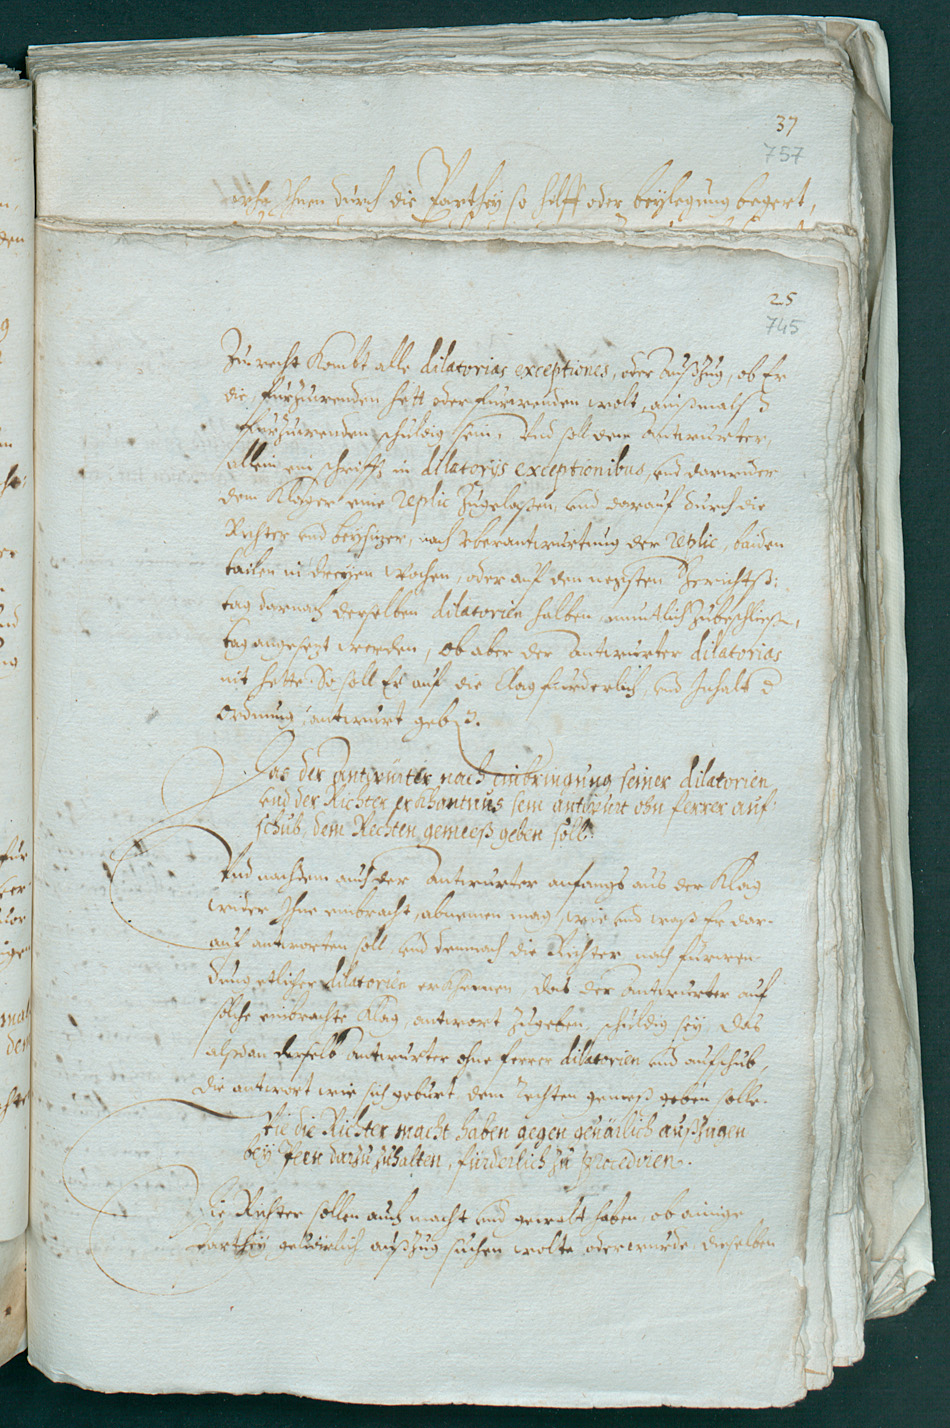 37
757
Ihnen durch die Parthey so hilff oder beylegung begert,
25
745
Zu recht Kombt alle dilatorias exceptiones, oder Außzug, ob Er
die furzuwenden hett oder furwenden wolt, ainßmals
Furzuwenden schuldig sein, Und sol dem Antwurter,
allein ein schrifft in dilatorys exceptionibus, und darwider
dem Klager eine replic Zugelaßen, und darauf durch die
Richter und beysizer, nach uberantwurtung der replic, baiden
tailen in dreyen wochen, oder auf den negsten Gerichtß:
tag darnach derselben dilatorien halben mundtlich Zubeschließen,
tag angesezt werden, Ob aber der Antwurter dilatorias
nit hette. So soll Er auf die Clag furderlich, und Inhalt d
Ordnung, antwurt geben.
Das der Antwurter nach einbringung seiner dilatorien
und der Richter erkhantnus sein antwurt ohn ferrer auf-
schub, dem Rechten gemeeß geben soll.
Und nachdem auch der Antwurter anfangs aus der Klag
wider Ihne einbracht, abnemen mag, wie und waß Er dar-
auf antworten soll und demnach die Richter nach furwen-
dung etlicher dilatorien erkhennen, das der Antwurter auf
solche einbrachte Klag, antwort Zugeben, schuldig sey, Das
alßdan derselb Antwurter ohne ferrer dilatorien und aufschub,
die antwort wie sich geburt dem Rechten gemeß geben solle.
Wie die Richter macht haben gegen gevärlich außzugen
bey Peen darzu zuhalten, fürderlich zu procedirn.
Die Richter sollen auch macht und gewalt haben, ob ainige
Parthey gevärlich außzug suchen wolte oder wurde, dieselben